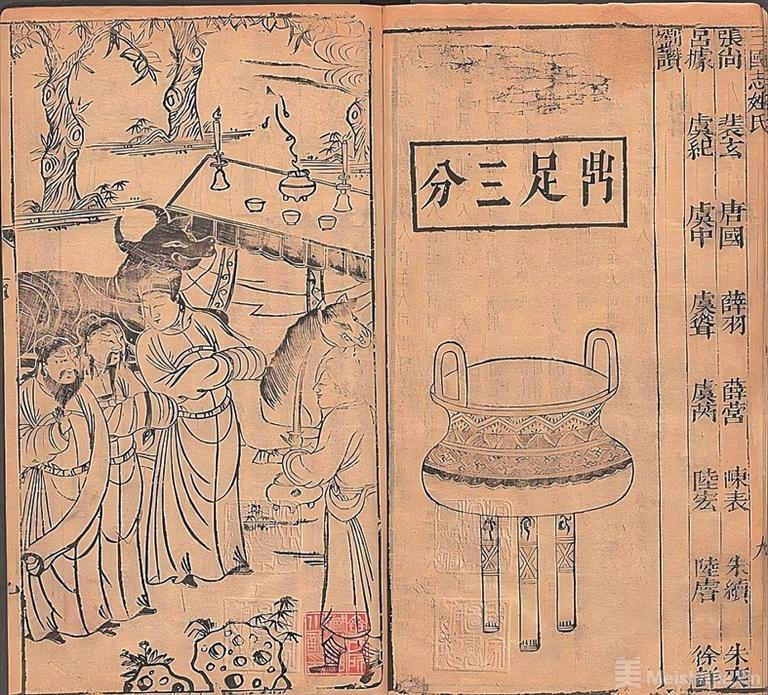 三國志姓氏
九
張尚 裴玄 唐國 薛羽 薛瑩 陳表 朱續 朱
呂據 虞紀 虞中 虞聳 虞 陸宏 陸 徐詳
劉讚
鼎足三分
美